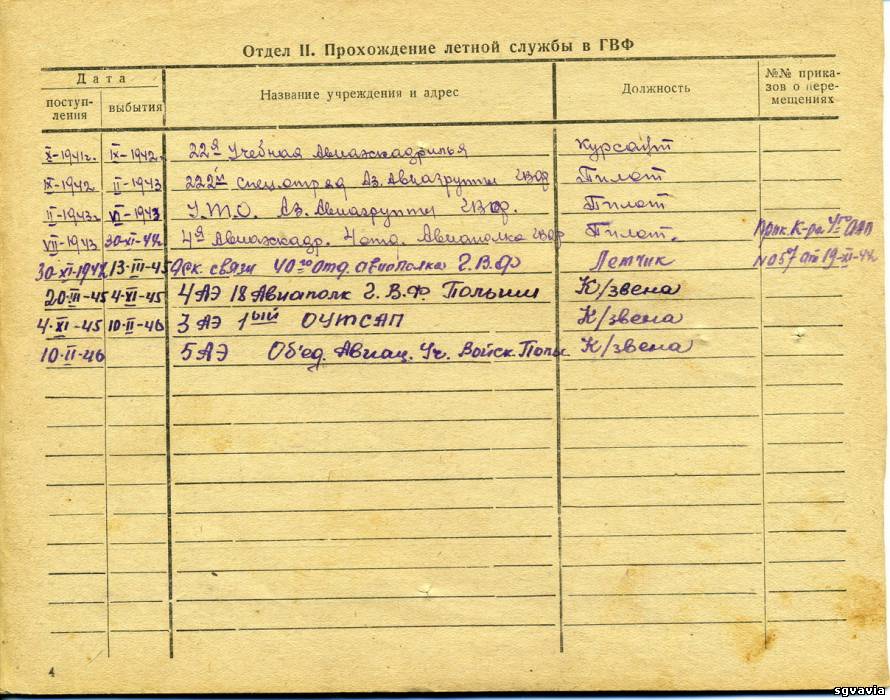 Отдел II. Прохождение летной службы в ГВФ
Дата
поступ-
ления
выбытия
Название учреждения и адрес
Должность
№№ прика-
зов о пере-
мещениях
X-1941г. IX-1942. 22я Учебная Авиаэскадрилья Курсант
IX-1942 II-1943 222ой спец.отряд Аз. Авиагруппы ГВФ Пилот
II-1943г. VI-1943 У.Т.О. Аз. Авиагруппы ГВФ. Пилот
VII-1943 30-XI-44 4я Авиаэскадр. 4 отд. Авиаполка ГВФ Пилот. Прик. К-ра 4го ОАП
30-XI-1944 13-III-45 эск. связи 40го отд. авиаполка Г.В.Ф Летчик №057 от 19-XI-44
20-III-45 4-XI-45 4 АЭ 18 Авиаполк Г.В.Ф. Польши К/звена
4-XI-45 10-II-46 3 АЭ 1ый ОУТСАП К/звена
10-II-46 5 АЭ Об'ед. Авиац. Уч. Войск. Поль. К/звена
4
sgvavia